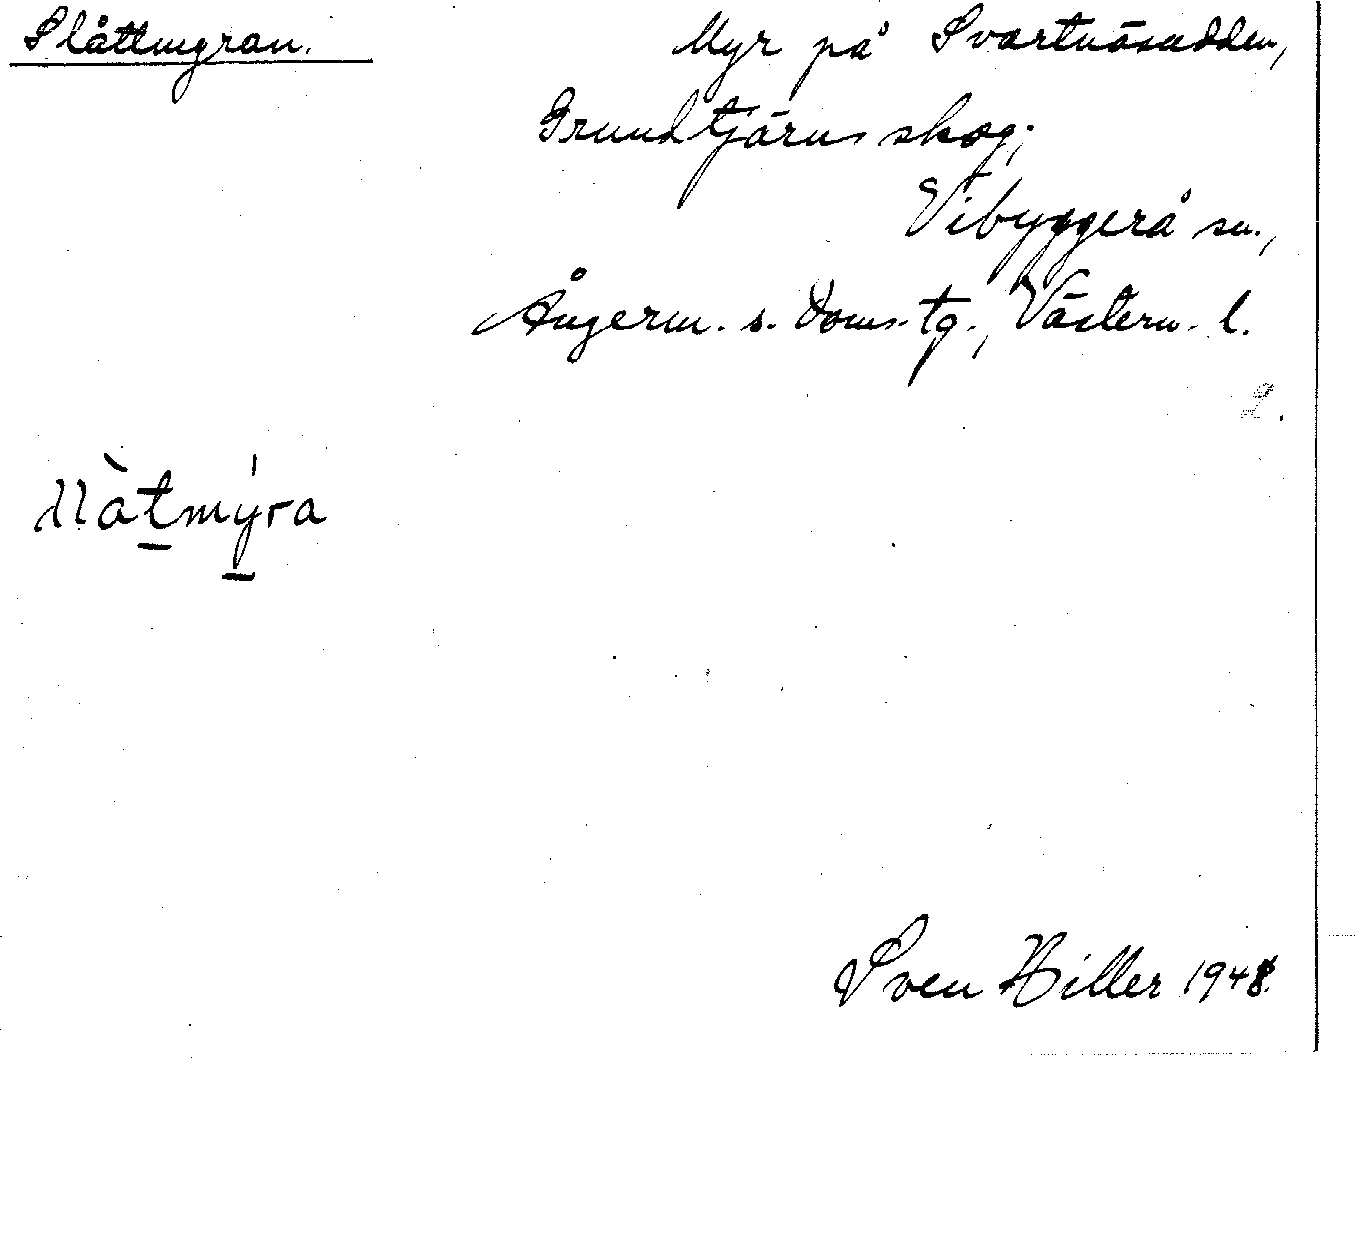 Slåttmyran.
Myr på Svartnäsudden,
Grundtjärns skog;
Vibyggerå sn.,
Ångerm. s. Doms.tg., Västern. l.
2.
Sven Hiller 1948.